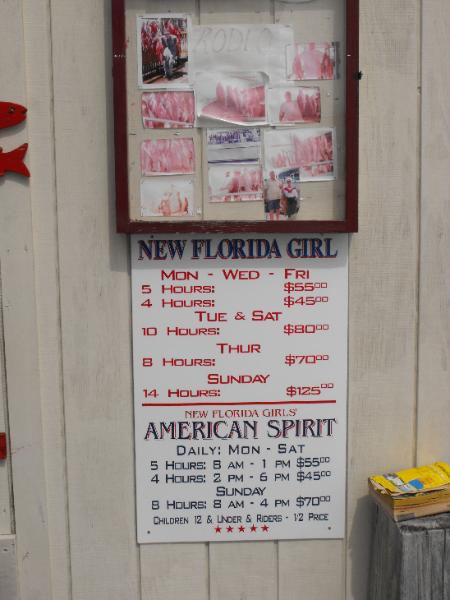 RODEO
NEW FLORIDA GIRL
MON - WED - FRI
5 HOURS: $55⁰⁰
4 HOURS: $45⁰⁰
TUE & SAT
10 HOURS: $80⁰⁰
THUR
8 HOURS: $70⁰⁰
SUNDAY
14 HOURS: $125⁰⁰
NEW FLORIDA GIRLS'
AMERICAN SPIRIT
DAILY: MON - SAT
5 HOURS: 8 AM - 1 PM $55⁰⁰
4 HOURS: 2 PM - 6 PM $45⁰⁰
SUNDAY
8 HOURS: 8 AM - 4 PM $70⁰⁰
CHILDREN 12 & UNDER & RIDERS - 1/2 PRICE